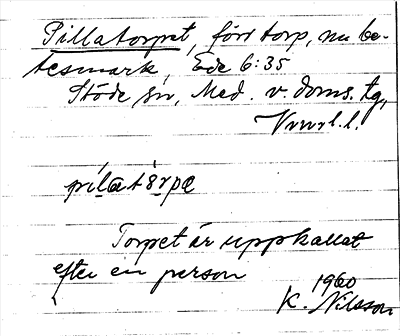 Pillatorpet, förr torp, nu be-
tesmark, Ede 6:35
Stöde sn, Med. v. doms. tg,
Vnrl. l.
pilatǫrpa
Torpet är uppkallat
efter en person
1960
K. Nilsson